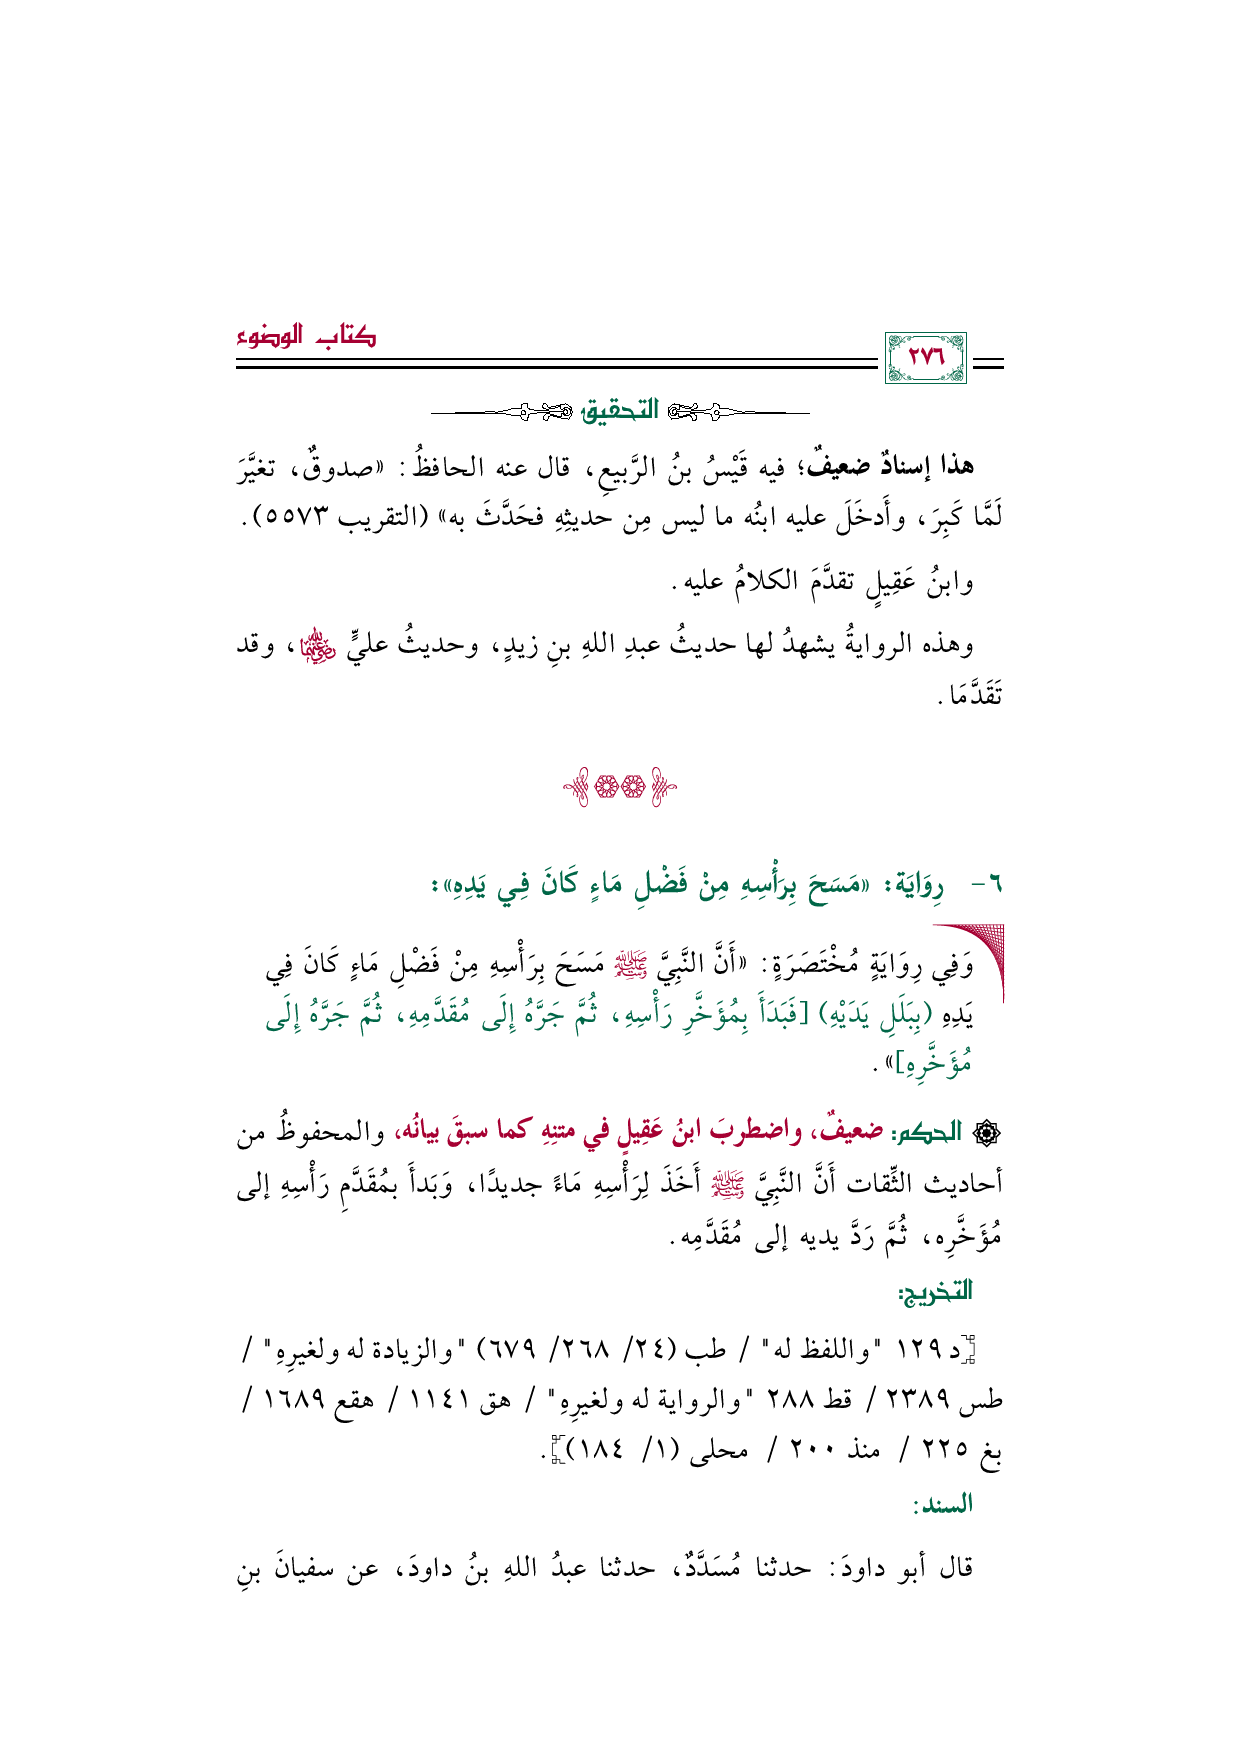 كتاب الوضوء
٢٧٦
التحقيق
هذا إسنادٌ ضعيفٌ؛ فيه قَيْسُ بنُ الرَّبيعِ، قال عنه الحافظُ: «صدوقٌ، تغيَّرَ
لَمَّا كَبِرَ، وأَدخَلَ عليه ابنُه ما ليس مِن حديثِهِ فحَدَّثَ به» (التقريب ٥٥٧٣).
وابنُ عَقِيلٍ تقدَّمَ الكلامُ عليه.
وهذه الروايةُ يشهدُ لها حديثُ عبدِ اللهِ بنِ زيدٍ، وحديثُ عليٍّ رضي الله عنهما، وقد
تَقَدَّمَا.
٦- رِوَايَة: «مَسَحَ بِرَأْسِهِ مِنْ فَضْلِ مَاءٍ كَانَ فِي يَدِهِ»:
وَفِي رِوَايَةٍ مُخْتَصَرَةٍ: «أَنَّ النَّبِيَّ ﷺ مَسَحَ بِرَأْسِهِ مِنْ فَضْلِ مَاءٍ كَانَ فِي
يَدِهِ (بِبَلَلِ يَدَيْهِ) [فَبَدَأَ بِمُؤَخَّرِ رَأْسِهِ، ثُمَّ جَرَّهُ إِلَى مُقَدَّمِهِ، ثُمَّ جَرَّهُ إِلَى
مُؤَخَّرِهِ]».
الحكم: ضعيفٌ، واضطربَ ابنُ عَقِيلٍ في متنِهِ كما سبقَ بيانُه، والمحفوظُ من
أحاديث الثِّقات أَنَّ النَّبِيَّ ﷺ أَخَذَ لِرَأْسِهِ مَاءً جديدًا، وَبَدأَ بمُقَدَّمِ رَأْسِهِ إلى
مُؤَخَّرِه، ثُمَّ رَدَّ يديه إلى مُقَدَّمِه.
التخريج:
[د ١٢٩ "واللفظ له" / طب (٢٤/ ٢٦٨/ ٦٧٩) "والزيادة له ولغيرِهِ" /
طس ٢٣٨٩ / قط ٢٨٨ "والرواية له ولغيرِهِ" / هق ١١٤١ / هقع ١٦٨٩ /
بغ ٢٢٥ / منذ ٢٠٠ / محلى (١/ ١٨٤)].
السند:
قال أبو داودَ: حدثنا مُسَدَّدٌ، حدثنا عبدُ اللهِ بنُ داودَ، عن سفيانَ بنِ